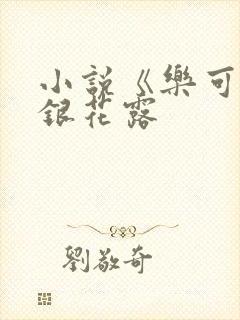 小説《樂可
銀花露
劉敬奇